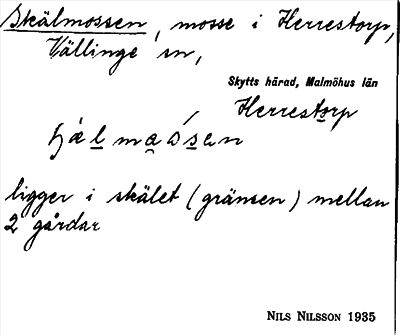 Skälmossen, mosse i Herrestorp,
Vällinge sn,
Skytts härad, Malmöhus län
Herrestorp
ligger i skälet (gränsen) mellan
2 gårdar
NILS NILSSON 1935